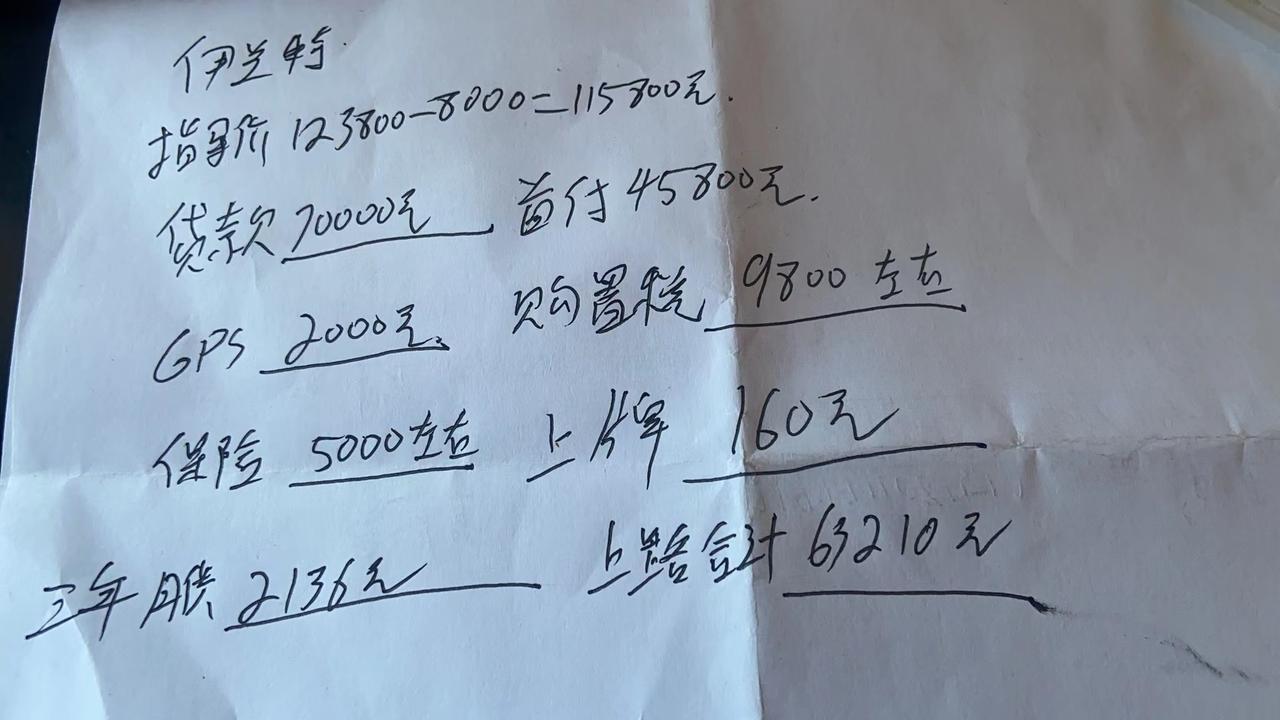 伊兰特
指导价 123800-8000=115800元.
贷款 70000元 首付 45800元.
GPS 2000元. 购置税 9800左右
保险 5000左右 上牌 160元
三年月供 2136元 上路合计 63210元